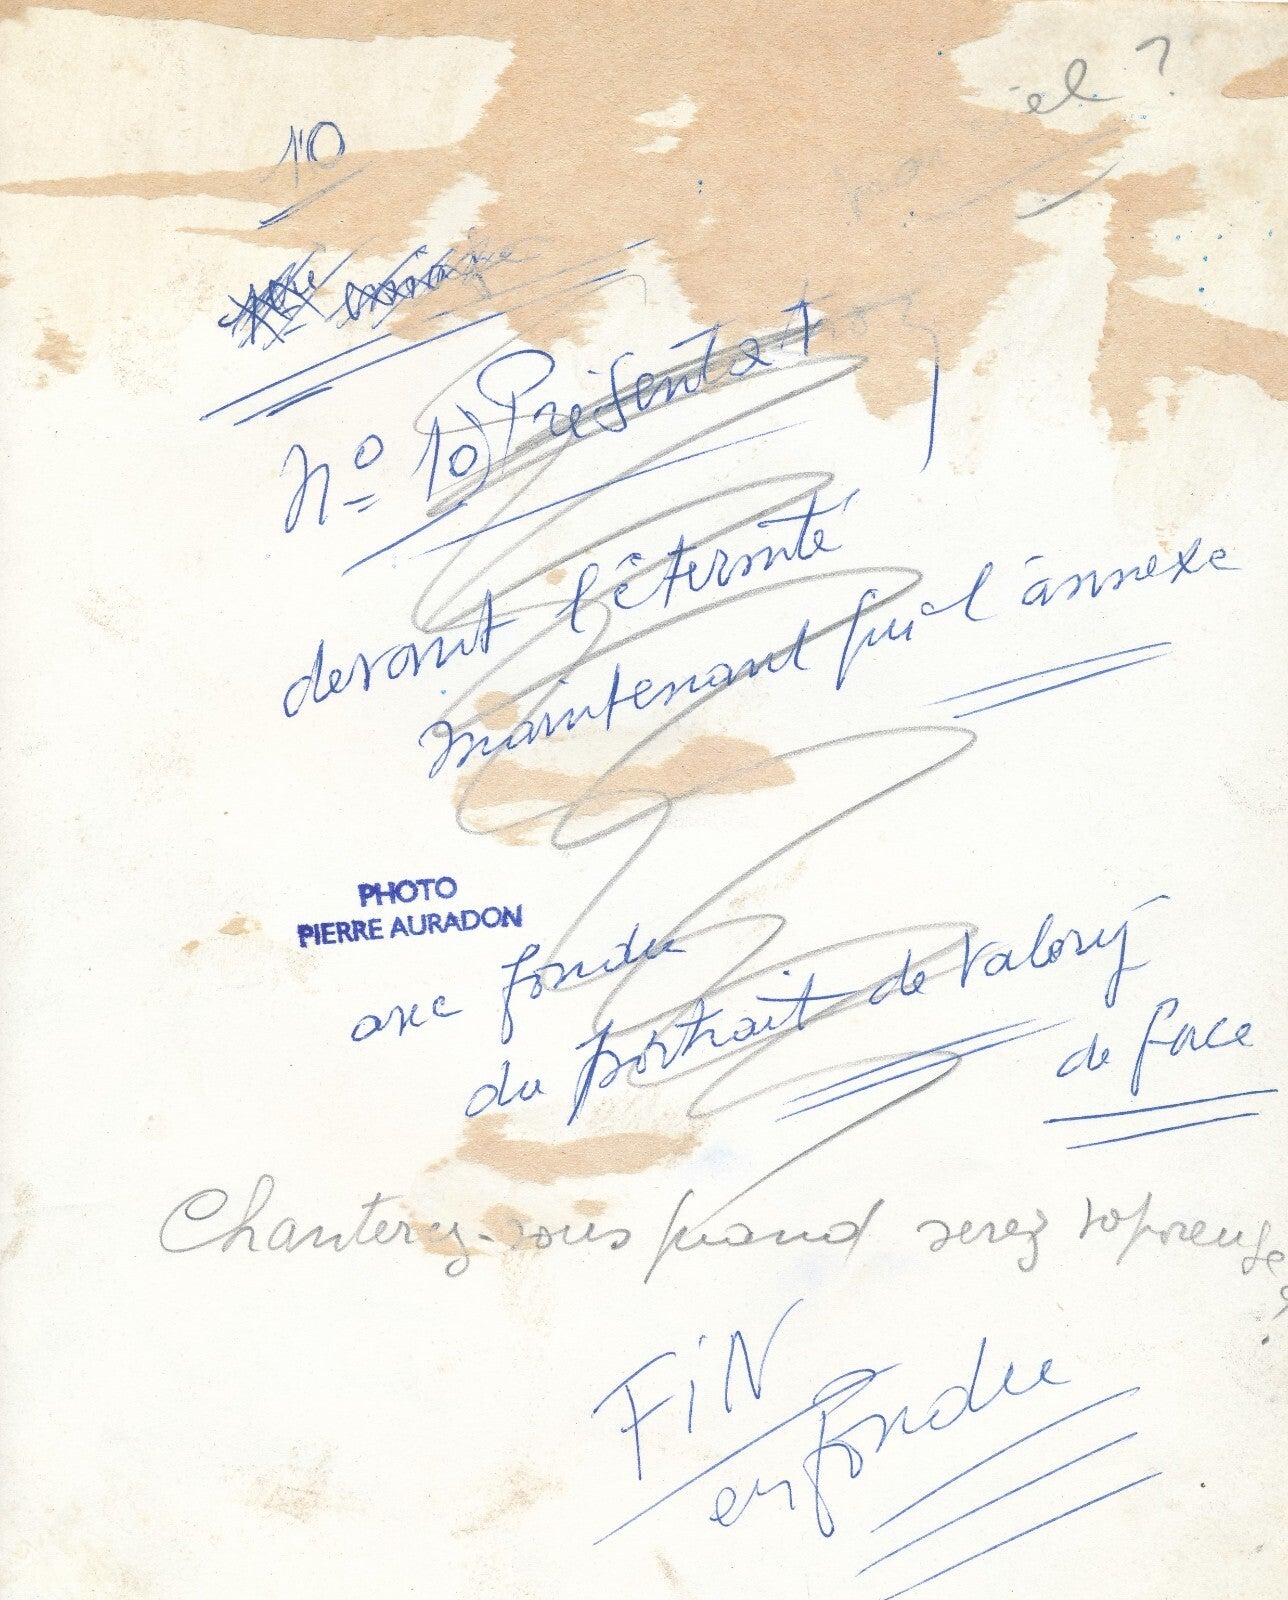 ciel ?
10
N° 10) Présentat
devant l'éternité
maintenant qui l'annexe
PHOTO
PIERRE AURADON
avec fondu
du portrait de Valéry
de face
Chanterez-vous quand serez vaporeuse
?
FIN
en fondu